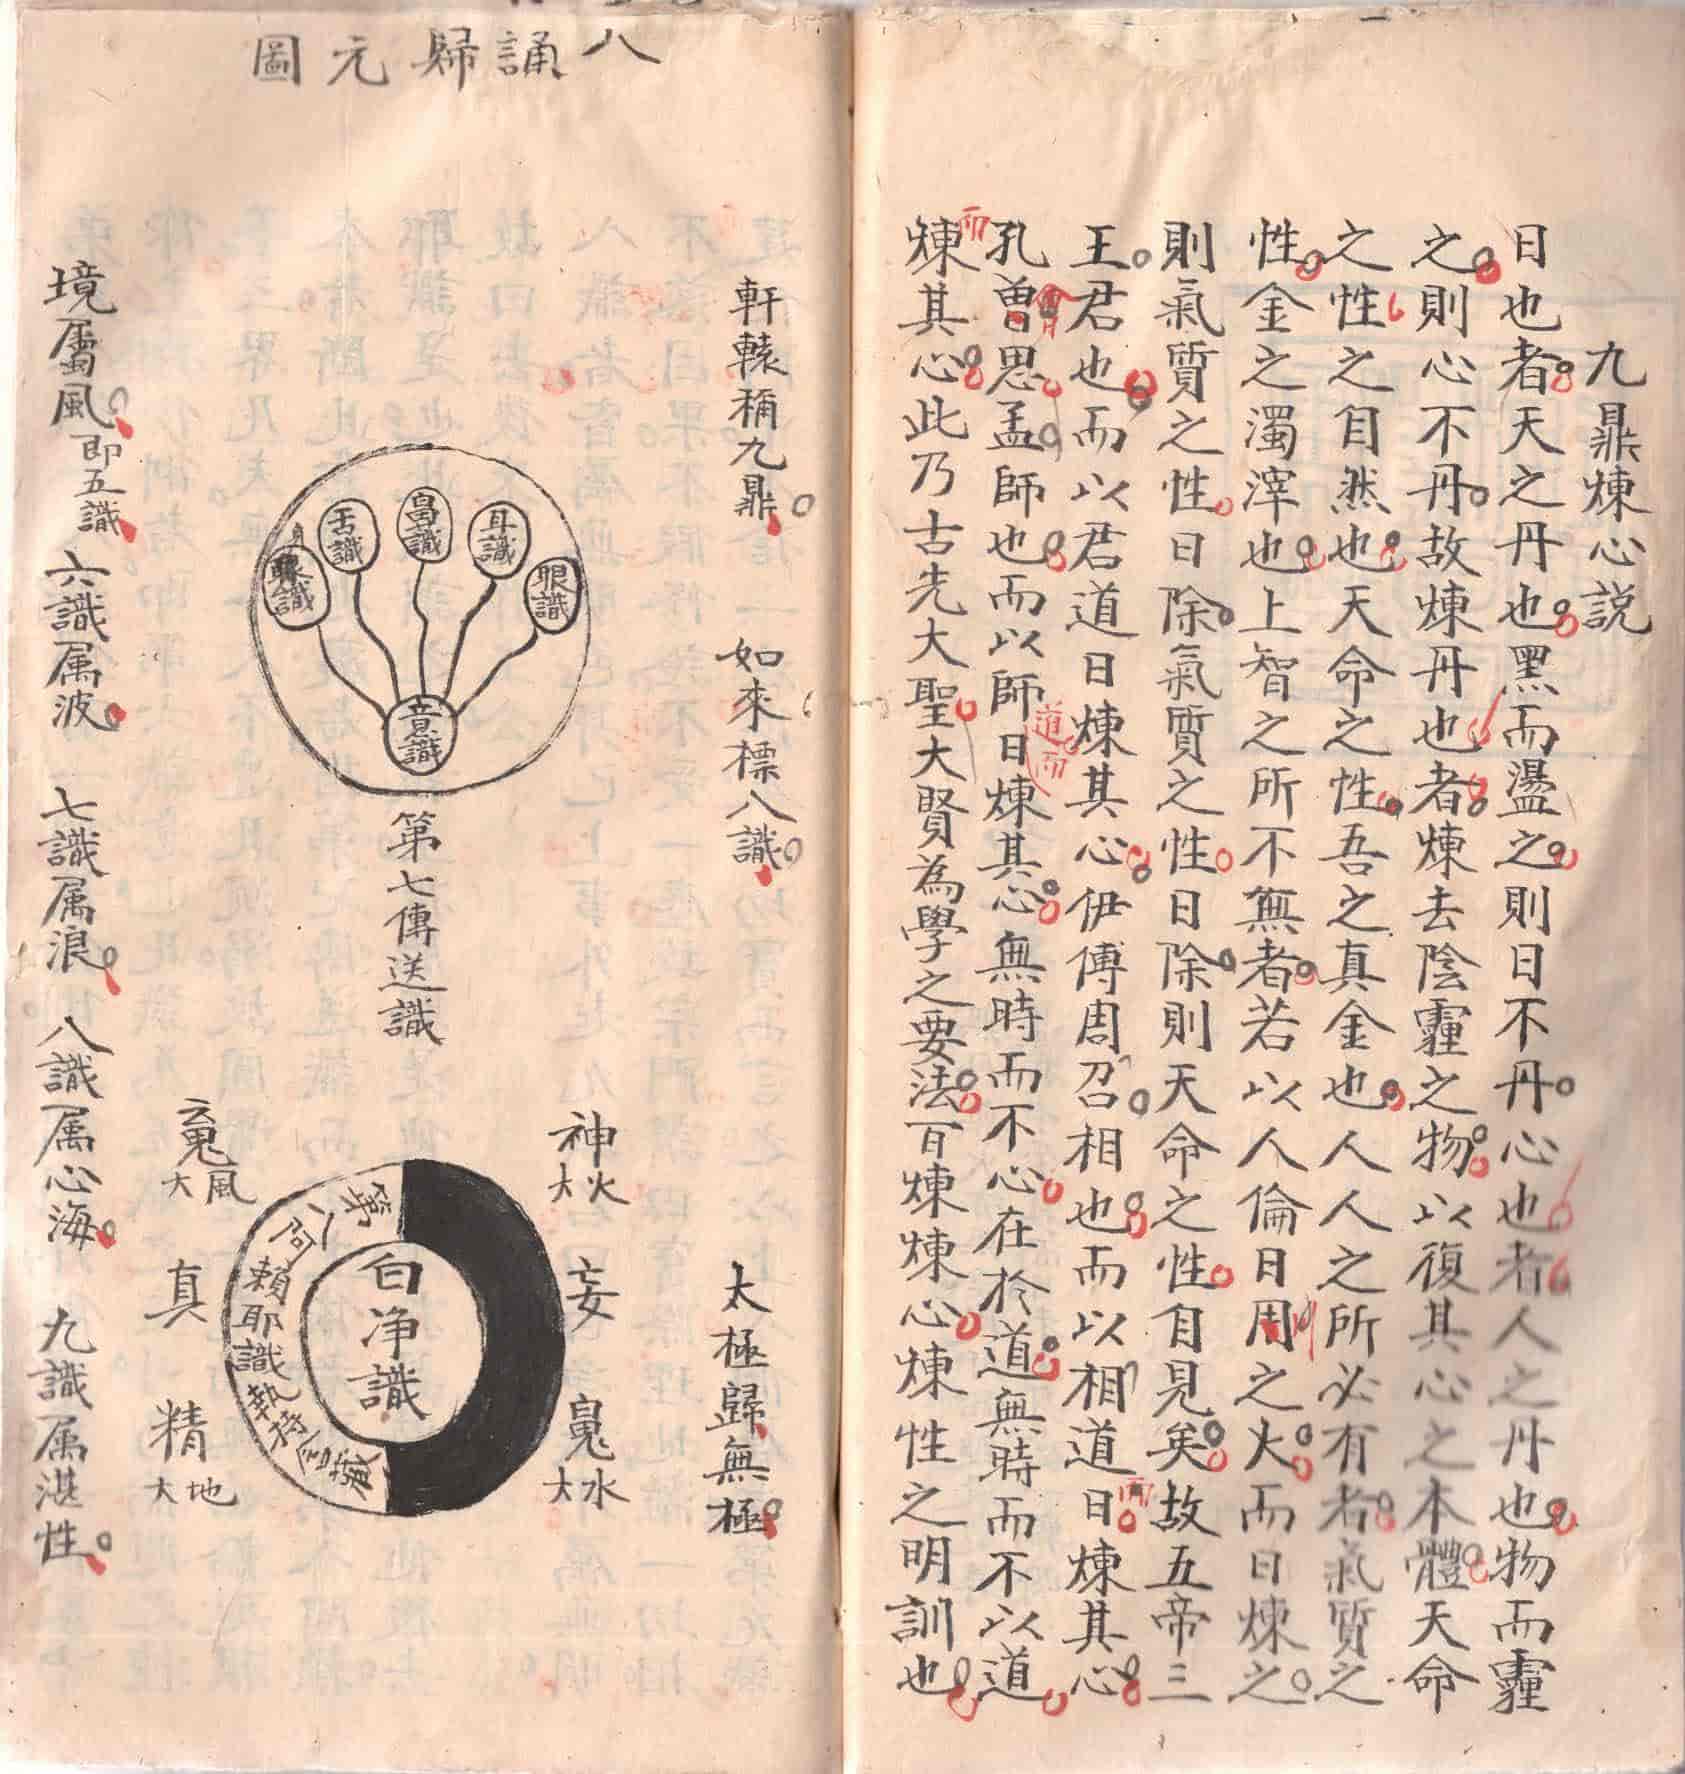 九鼎煉心説
日也者天之丹也黑而盪之則日不丹心也者人之丹也物而霾
之則心不丹故煉丹也者煉去陰霾之物以復其心之本體天命
之性之自然也天命之性吾之真金也人人之所必有者氣質之
性金之濁滓也上智之所不無者若以人倫日用之火而日煉之
則氣質之性日除氣質之性日除則天命之性自見矣故五帝三
王君也而以君道日煉其心伊傅周召相也而以相道日煉其心
孔曾思孟師也而以師日煉其心無時而不心在於道無時而不以道
煉其心此乃古先大聖大賢為學之要法百煉煉心煉性之明訓也
而
曾
道而
而
八誦歸元圖
軒轅稱九鼎
如來標八識
太極歸無極
眼識
耳識
鼻識
舌識
身識
意識
第七傳送識
神
大火
妄
大水
第八阿賴耶識執持含藏
白净識
大風
真
精
大地
境屬風即五識
六識属波
七識属浪
八識属心海
九識属湛性